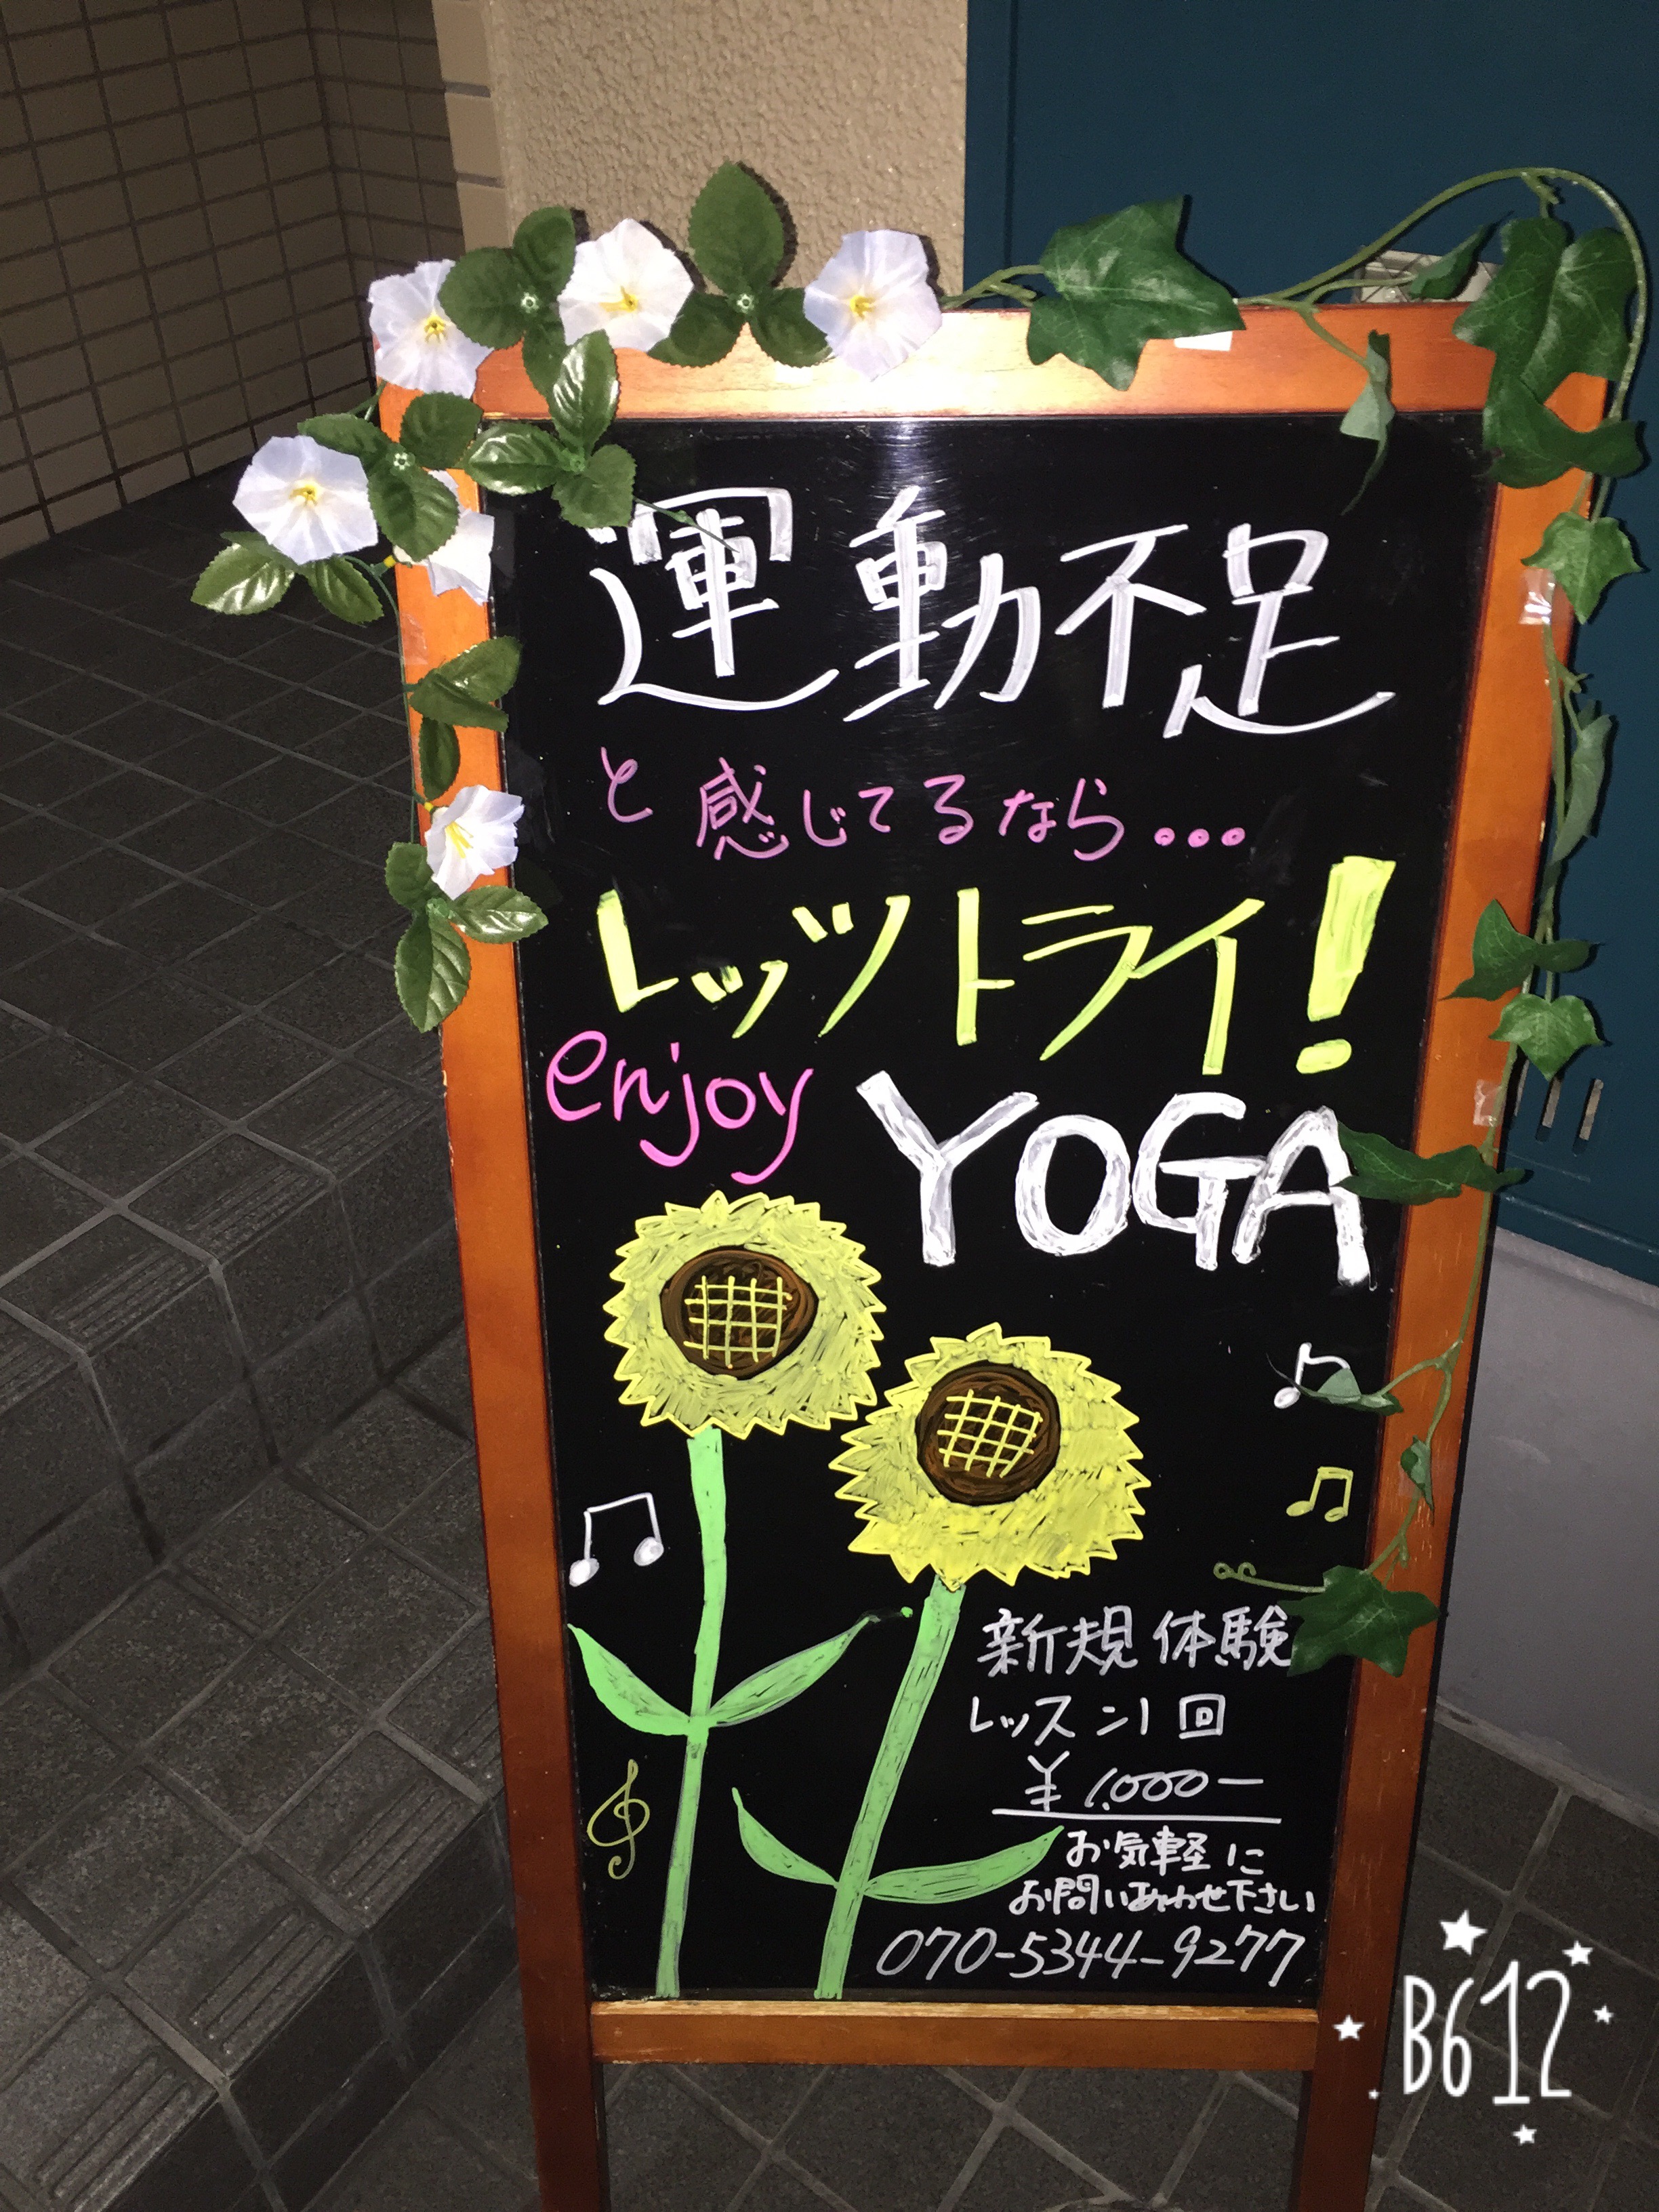 運動不足
と感じてるなら...
レッツトライ!
enjoy YOGA
新規体験
レッスン1回
¥1,000ー
お気軽に
お問いあわせ下さい
070-5344-9277
B612